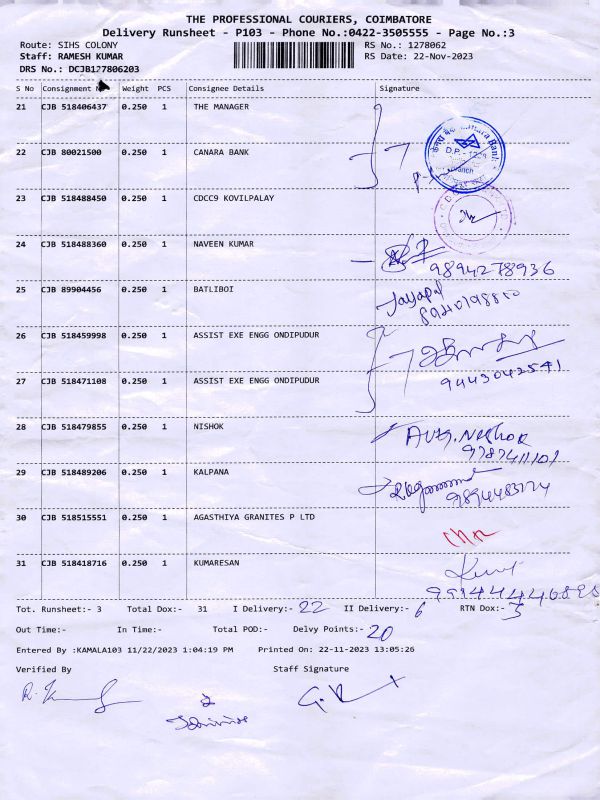 THE PROFESSIONAL COURIERS, COIMBATORE
Delivery Runsheet - P103 - Phone No.:0422-3505555 - Page No.:3
Route: SIHS COLONY RS No.: 1278062
Staff: RAMESH KUMAR RS Date: 22-Nov-2023
DRS No.: DCJB127806203
S No Consignment Weight PCS Consignee Details Signature
21 CJB 518406437 0.250 1 THE MANAGER
22 CJB 80021500 0.250 1 CANARA BANK
Canara Bank
D.P.
23 CJB 518488450 0.250 1 CDCC9 KOVILPALAY
24 CJB 518488360 0.250 1 NAVEEN KUMAR
9894278936
25 CJB 89904456 0.250 1 BATLIBOI Jayapal
26 CJB 518459998 0.250 1 ASSIST EXE ENGG ONDIPUDUR
9443042541
27 CJB 518471108 0.250 1 ASSIST EXE ENGG ONDIPUDUR
28 CJB 518479855 0.250 1 NISHOK
9787411101
29 CJB 518489206 0.250 1 KALPANA
30 CJB 518515551 0.250 1 AGASTHIYA GRANITES P LTD
31 CJB 518418716 0.250 1 KUMARESAN
Tot. Runsheet:- 3 Total Dox:- 31 I Delivery:- 22 II Delivery:- 6 RTN Dox:- 3
Out Time:- In Time:- Total POD:- Delvy Points:- 20
Entered By :KAMALA103 11/22/2023 1:04:19 PM Printed On: 22-11-2023 13:05:26
Verified By Staff Signature